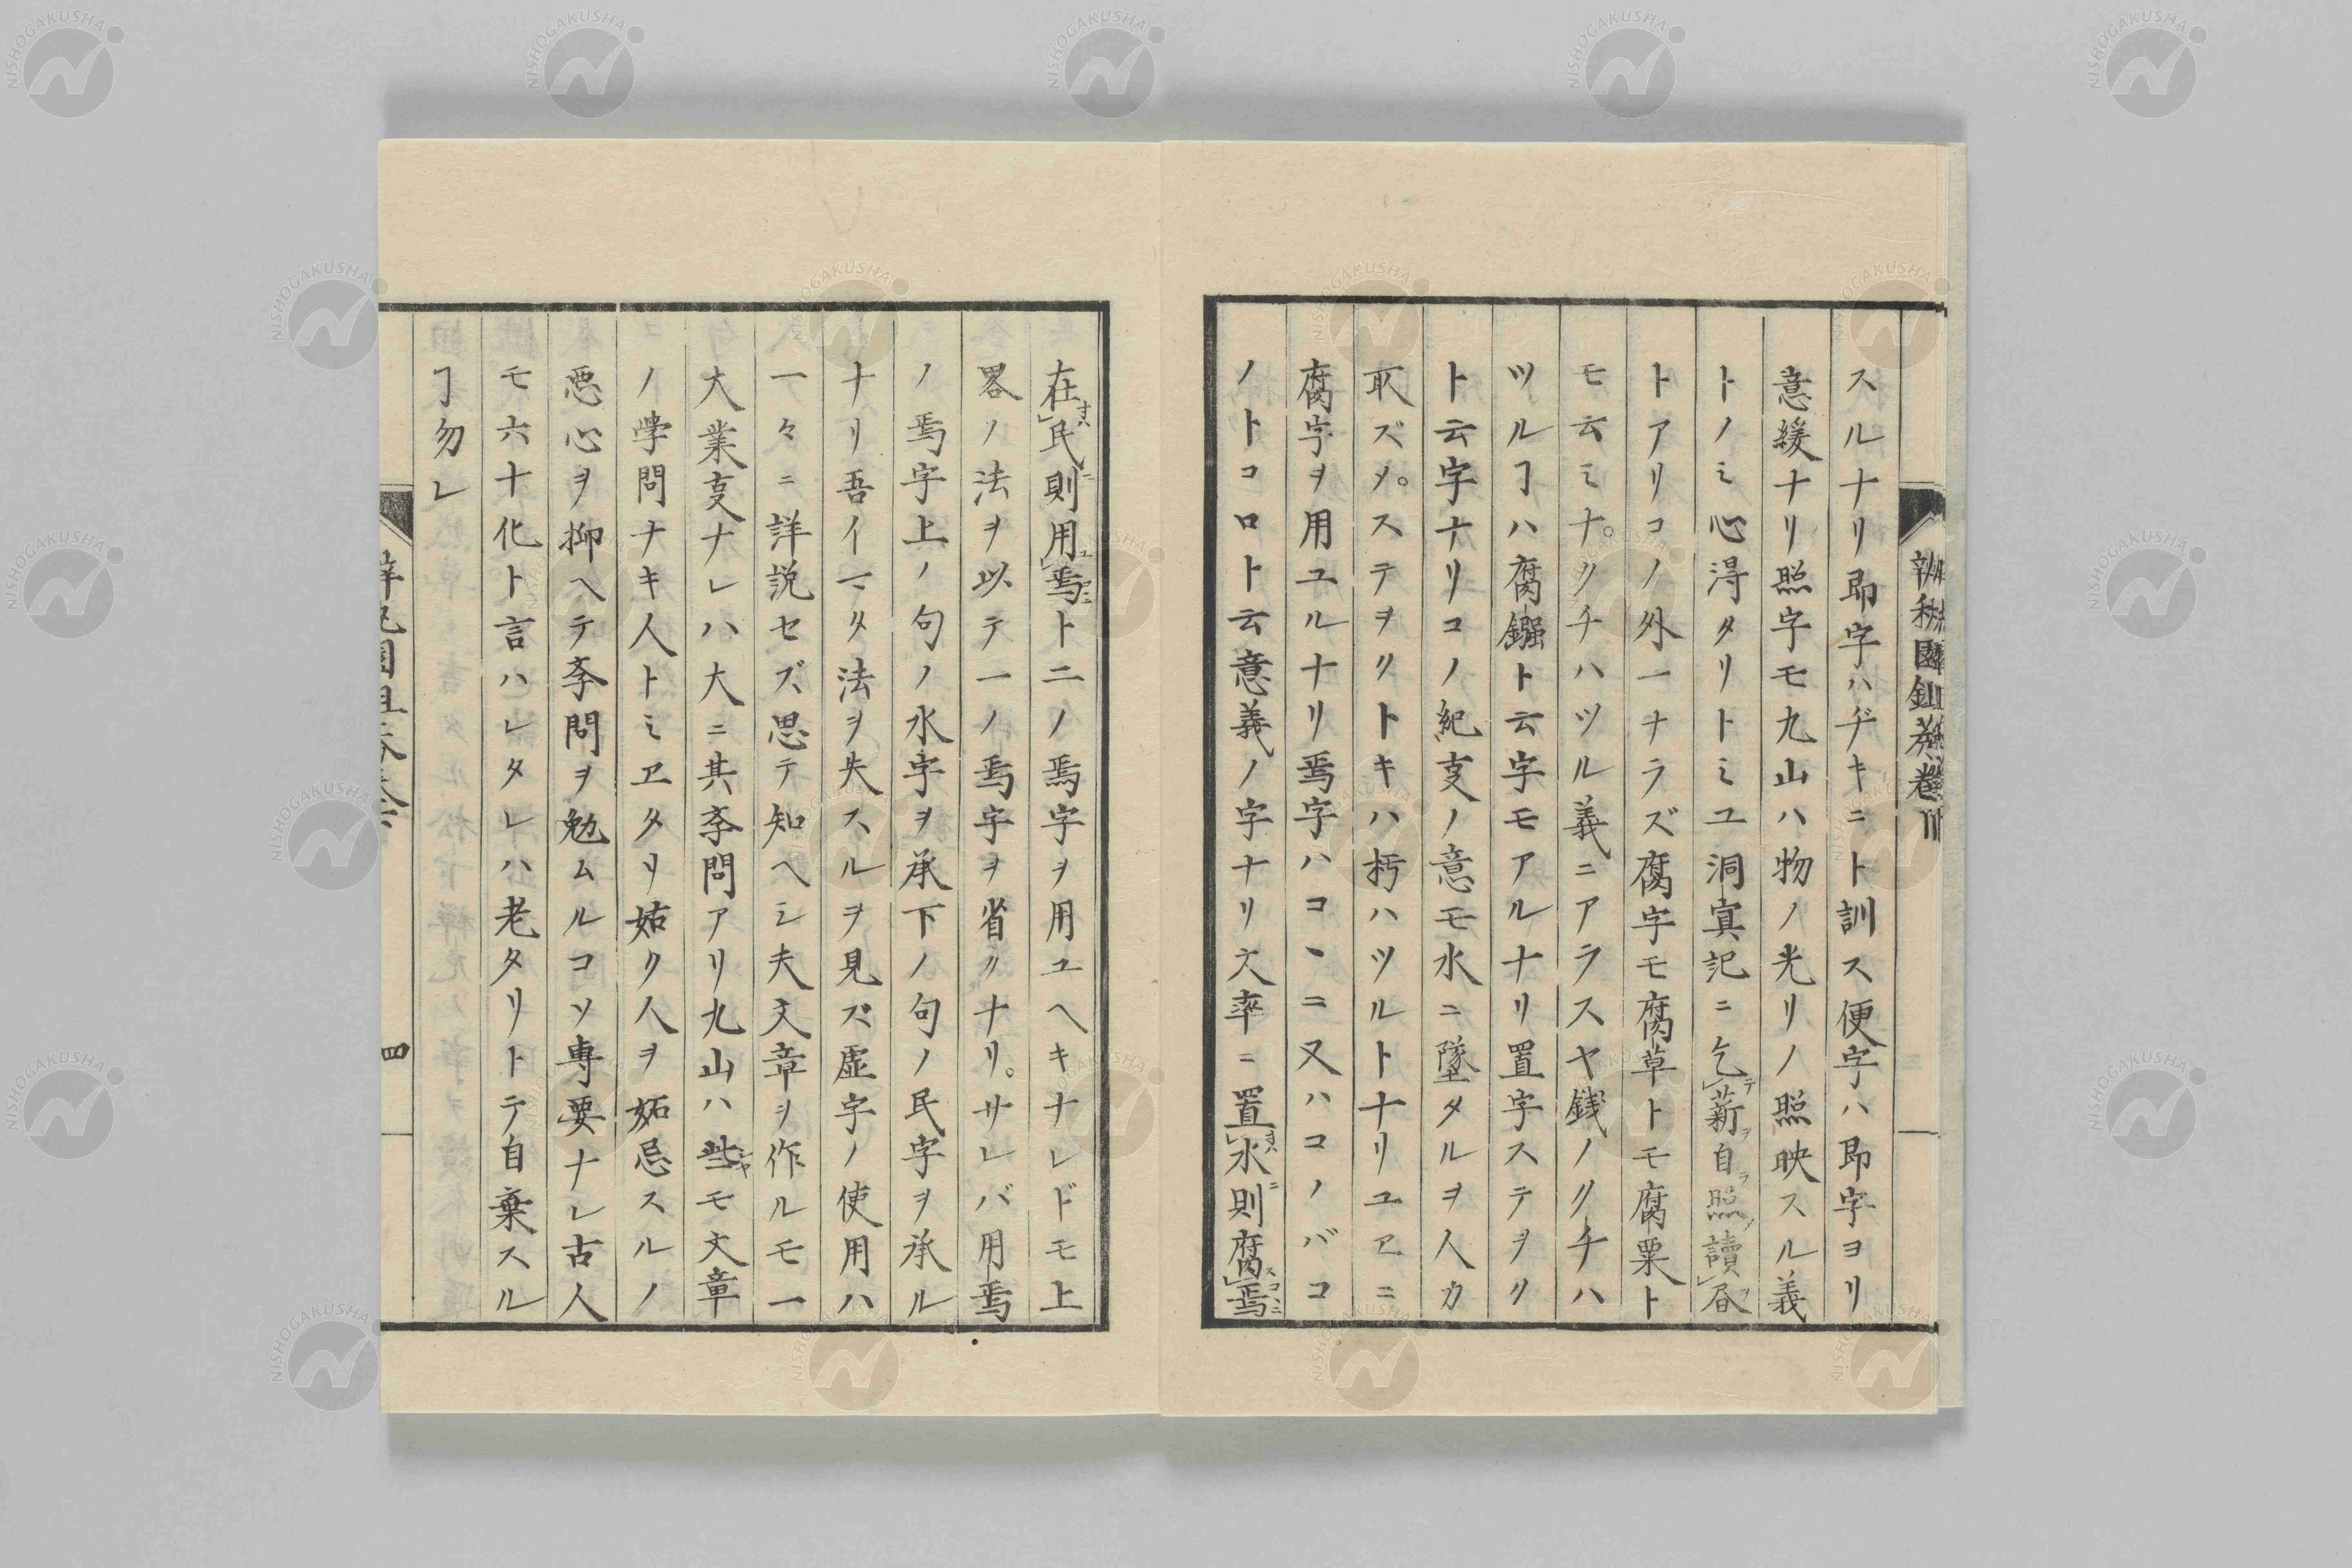 スルナリ即字ハヂキニト訓ス便字ハ即字ヨリ
意緩ナリ照字モ九山ハ物ノ光リノ照映スル義
トノミ心得タリトミユ洞冥記ニ乞薪自照讀昼
トアリコノ外一ナラズ腐字モ腐草トモ腐粟ト
モ云ミナ。クチハツル義ニアラスヤ銭ノクチハ
ツルヿハ腐鏹ト云字モアルナリ置字ステヲク
ト云字ナリコノ紀叓ノ意モ水ニ墜タルヲ人カ
取ズメ。ステヲクトキハ朽ハツルトナリユヱニ
腐字ヲ用ユルナリ焉字ハコヽニ又ハコノバコ
ノトコロト云意義ノ字ナリ文率ニ置水則腐焉
在民則用焉ト二ノ焉字ヲ用ユヘキナレドモ上
畧ノ法ヲ以テ一ノ焉字ヲ省クナリ。サレバ用焉
ノ焉字上ノ句ノ水字ヲ承下ノ句ノ民字ヲ承ル
ナリ吾イマタ法ヲ失スルヲ見ズ虚字ノ使用ハ
一々ニ詳説セズ思テ知ヘシ夫文章ヲ作ルモ一
大業叓ナレハ大ニ其斈問アリ九山ハ些モ文章
ノ学問ナキ人トミヱタリ妬ク人ヲ妬忌スルノ
悪心ヲ抑ヘテ斈問ヲ勉ムルコソ専要ナレ古人
モ六十化ト言ハレタレハ老タリトテ自棄スル
ヿ勿レ
四
NISHOGAKUSHA